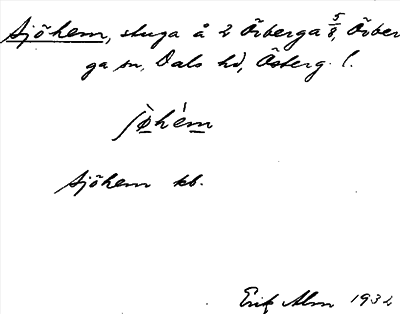 Sjöhem, stuga å 2 Örberga 5/8, Örber
ga sn, Dals hd, Österg. l.
ʃø̀hém
Sjöhem kb.
Erik Alm 1932